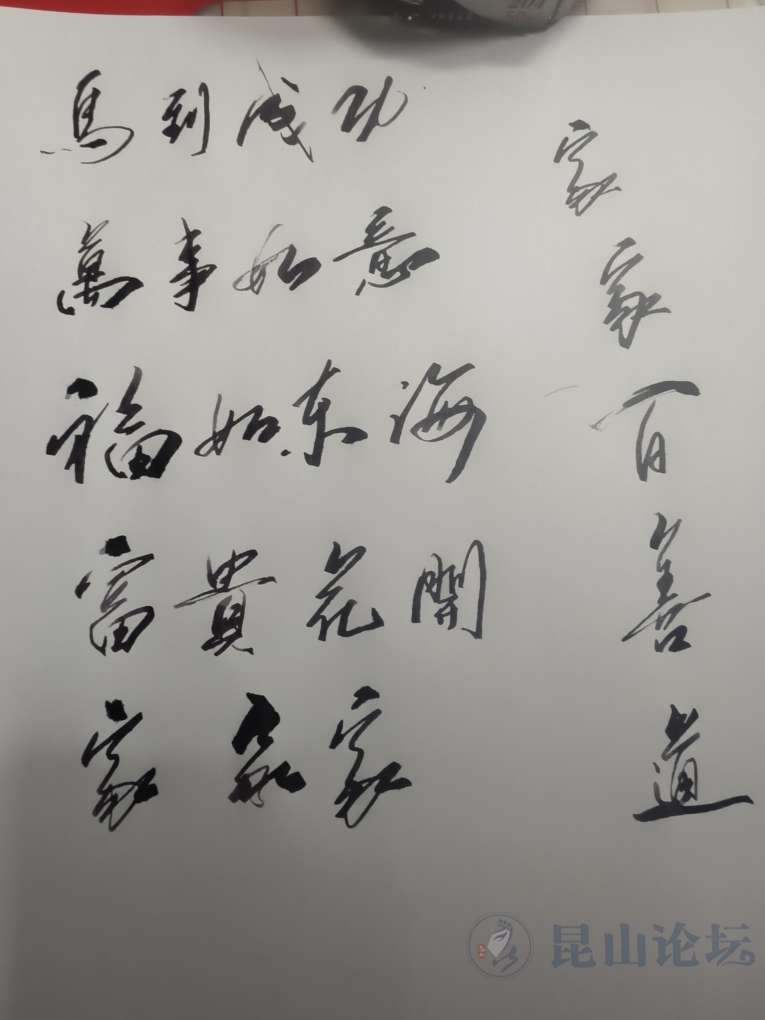 馬到成功
萬事如意
福如东海
富貴花開
家家家
家家百善道
昆山论坛